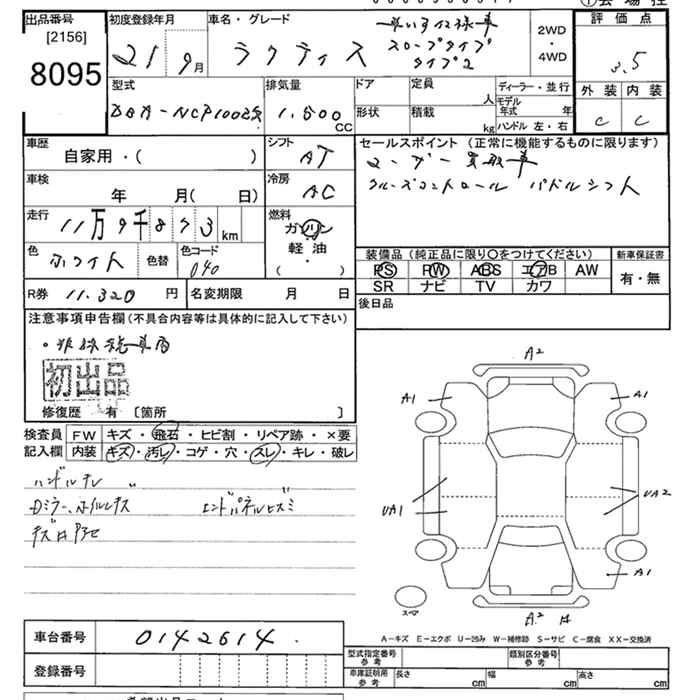 出品番号
[2156]
8095
初度登録年月
21 9月
車名・グレード
ラクティス
車いす仕様車
スロープタイプ
タイプ2
2WD
・
4WD
評価点
3.5
外装 内装
C C
型式
DBA-NCP100改
排気量
1.500
CC
ドア
形状
定員
人
積載
kg
ディーラー・並行
モデル
年式 年
ハンドル 左・右
車歴
自家用・( )
シフト
AT
セールスポイント (正常に機能するものに限ります)
ユーザー買取車
クルーズコントロール パドルシフト
車検
年 月( 日)
冷房
AC
走行
11万9千873 km
燃料
ガソリン
軽・油
・
( )
色
ホワイト
色替
色コード
040
装備品 (純正品に限り○をつけてください)
PS PW ABS エアB AW
SR ナビ TV カワ
新車保証書
有・無
R券 11.320 円
名変期限 月 日
後日品
注意事項申告欄 (不具合内容等は具体的に記入して下さい)
初出品
修復歴 有 〔箇所 〕
検査員
記入欄
FW キズ・飛石・ヒビ割・リペア跡・×要
内装 キズ・汚レ・コゲ・穴・スレ・キレ・破レ
ハンドルスレ
Dミラー、ホイルキズ エンドパネルヒズミ
A2
A1 A1
UA1 UA2
A1
A2
A-キズ E-エクボ U-凹み W-補修跡 S-サビ C-腐食 XX-交換済
車台番号
0142614
登録番号
型式指定番号
参考
類別区分番号
参考
車庫証明用
参考
長さ cm
幅 cm
高さ cm